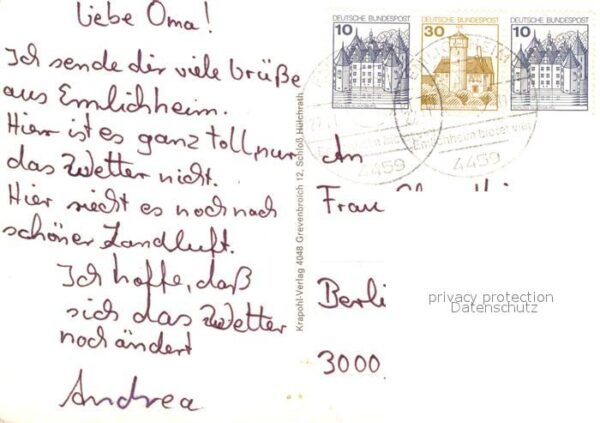 Liebe Oma!
Ich sende dir viele Grüße
aus Emlichheim.
Hier ist es ganz toll, nur
das Wetter nicht.
Hier riecht es noch nach
schöner Landluft.
Ich hoffe, daß
sich das Wetter
noch ändert
Andrea
Krapohl-Verlag 4048 Grevenbroich 12, Schloß Hülchrath
DEUTSCHE BUNDESPOST
10
DEUTSCHE BUNDESPOST
30
DEUTSCHE BUNDESPOST
10
Emlichheim bietet viel
4459
Emlichheim bietet viel
4459
An
Frau
Berli
3000
privacy protection
Datenschutz